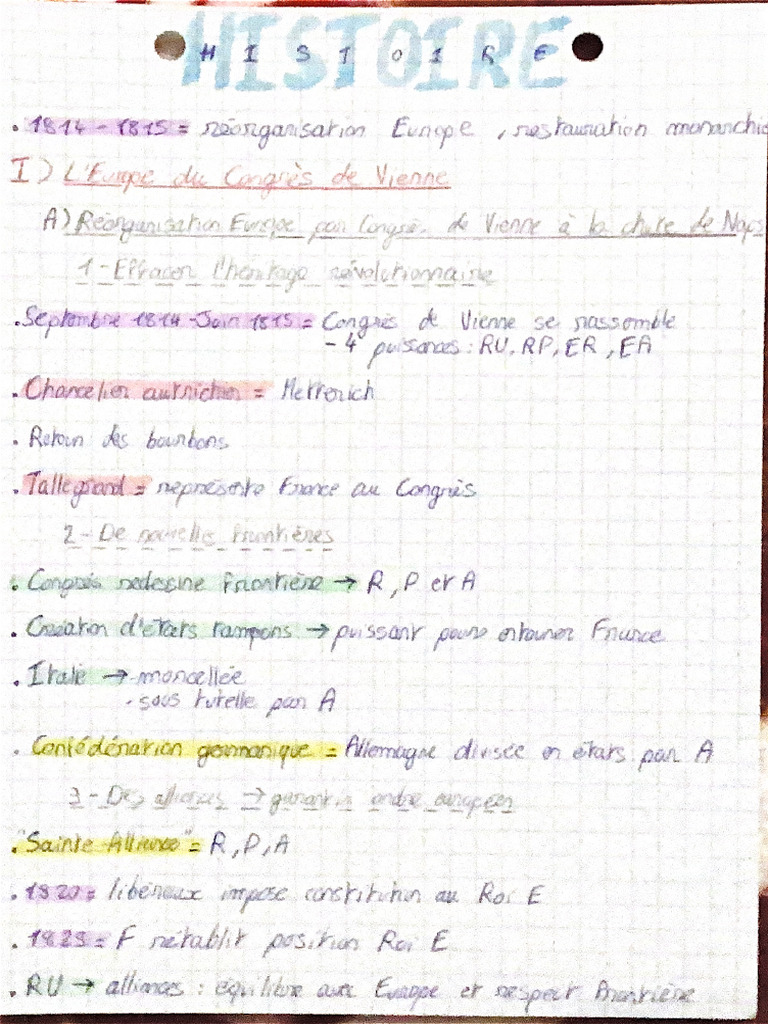 HISTOIRE
HISTOIRE
. 1814 - 1815 = réorganisation Europe, restauration monarchie
I) L'Europe du Congrès de Vienne
A) Réorganisation Europe par Congrès de Vienne à la chute de Napo
1 - Effacer l'héritage révolutionnaire
. Septembre 1814 - Juin 1815 = Congrès de Vienne se rassemble
- 4 puissances : RU, RP, ER, EA
. Chancelier autrichien = Metternich
. Retour des bourbons
. Tallegrand = représente France au Congrès
2 - De nouvelles frontières
. Congrès redessine frontière → R, P et A
. Création d'états tampons → puissant pour entourer France
. Italie → morcellée
. sous tutelle par A
. Confédération germanique = Allemagne divisée en états par A
3 - Des alliances → garantir ordre européen
. "Sainte Alliance" = R, P, A
. 1820 = libéraux impose constitution au Roi E
. 1823 = F rétablit position Roi E
. RU → alliances : équilibre avec Europe et respect frontière